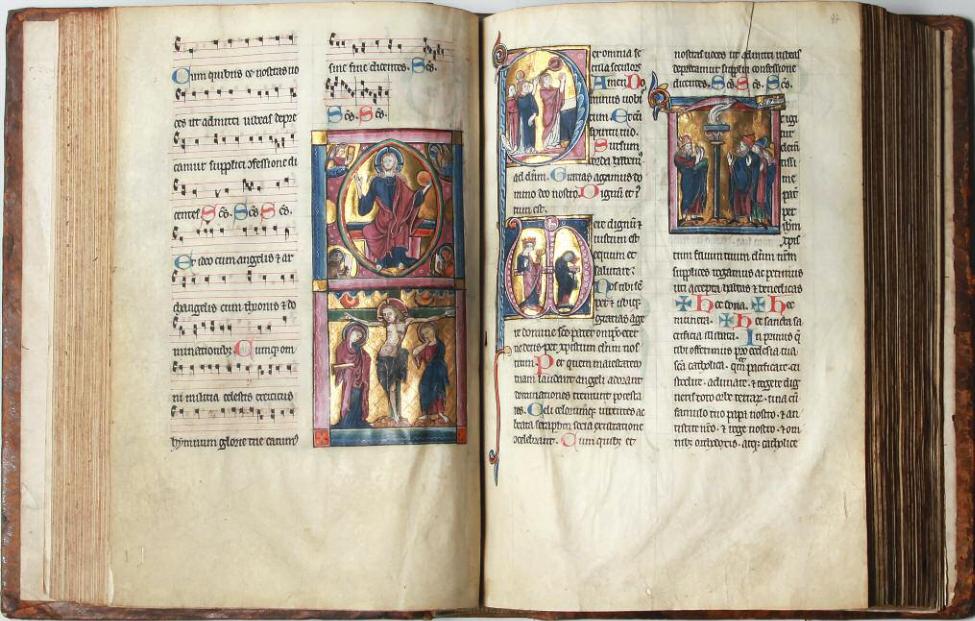 Cum quibus et nostras uo
ces ut admitti iubeas depre
camur supplici ofessione di
centes Scs. Scs Scs.
Et ideo cum angelis et ar
changelis cum thronis et do
minationibus Cumque om
ni militia celestis exercitus
hymnum glorie tue canimus
sine fine dicentes. Scs.
Scs. Scs.
er omnia se
cula seculorum
Amen Do
minus uobis
cum. Et cum
spiritu tuo.
Sursum
corda habemus
ad dnm. Gratias agamus do
mino deo nostro. Dignum et
iustum est.
ere dignum
iustum est
equum et
salutare.
Nos tibi semper
et ubique
gratias age
re domine sce pater omps eterne
deus per xpistum dnm nos
trum Per quem maiestatem
tuam laudant angeli adorant
dominationes tremunt potesta
tes. Celi celorumque uirtutes ac
beata seraphin socia exultatione
concelebrant. Cum quibus et
nostras uoces ut admitti iubeas
deprecamur supplici confessione
dicentes. Scs Scs. Scs.
igi
tur
clem
tissi
me
pat
per
ihm
xpm
tuum dnm nrm
supplices rogamus ac petimus
uti accepta habeas et benedicas
hec dona. hec
munera. hec sancta sa
crificia illibata. In primis que
tibi offerimus pro ecclesia tua
sca catholica. quam pacificare cu
stodire. adunare. et regere dig
neris toto orbe terrarum. una cum
famulo tuo papa nostro. et an
tistite nro. et rege nostro. et om
nibus orthodoxis. atque catholice